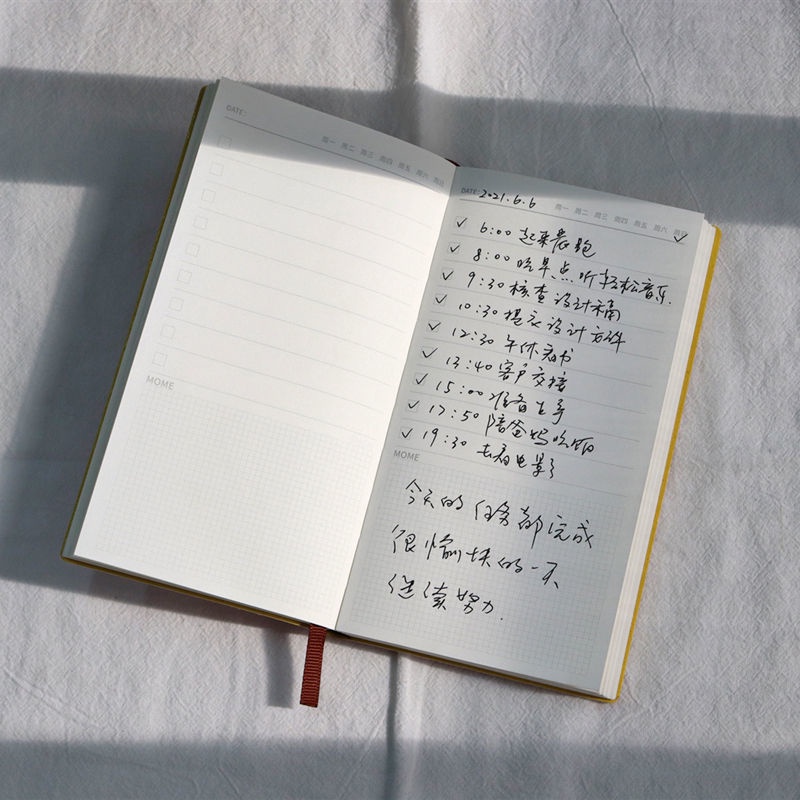 DATE:
周一 周二 周三 周四 周五 周六 周日
MOME
DATE: 2021.6.6
周一 周二 周三 周四 周五 周六 周日
✓ 6:00 起来晨跑
✓ 8:00 吃早点听轻松音乐.
✓ 9:30 核查设计稿
✓ 10:30 提交设计方案
✓ 12:30 午休看书
✓ 13:40 客户交接
✓ 15:00 准备
✓ 17:50 陪爸妈吃饭
✓ 19:30 去看电影
MOME
今天的任务都完成
很愉快的一天
继续努力.